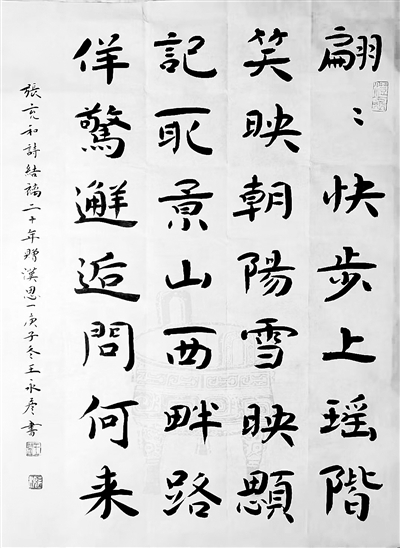 翩〻快步上瑶階
笑映朝陽雪映顋
記取景山西畔路
佯驚邂逅問何来
張充和詩結褵二十年贈漢思一庚子冬王永彦書